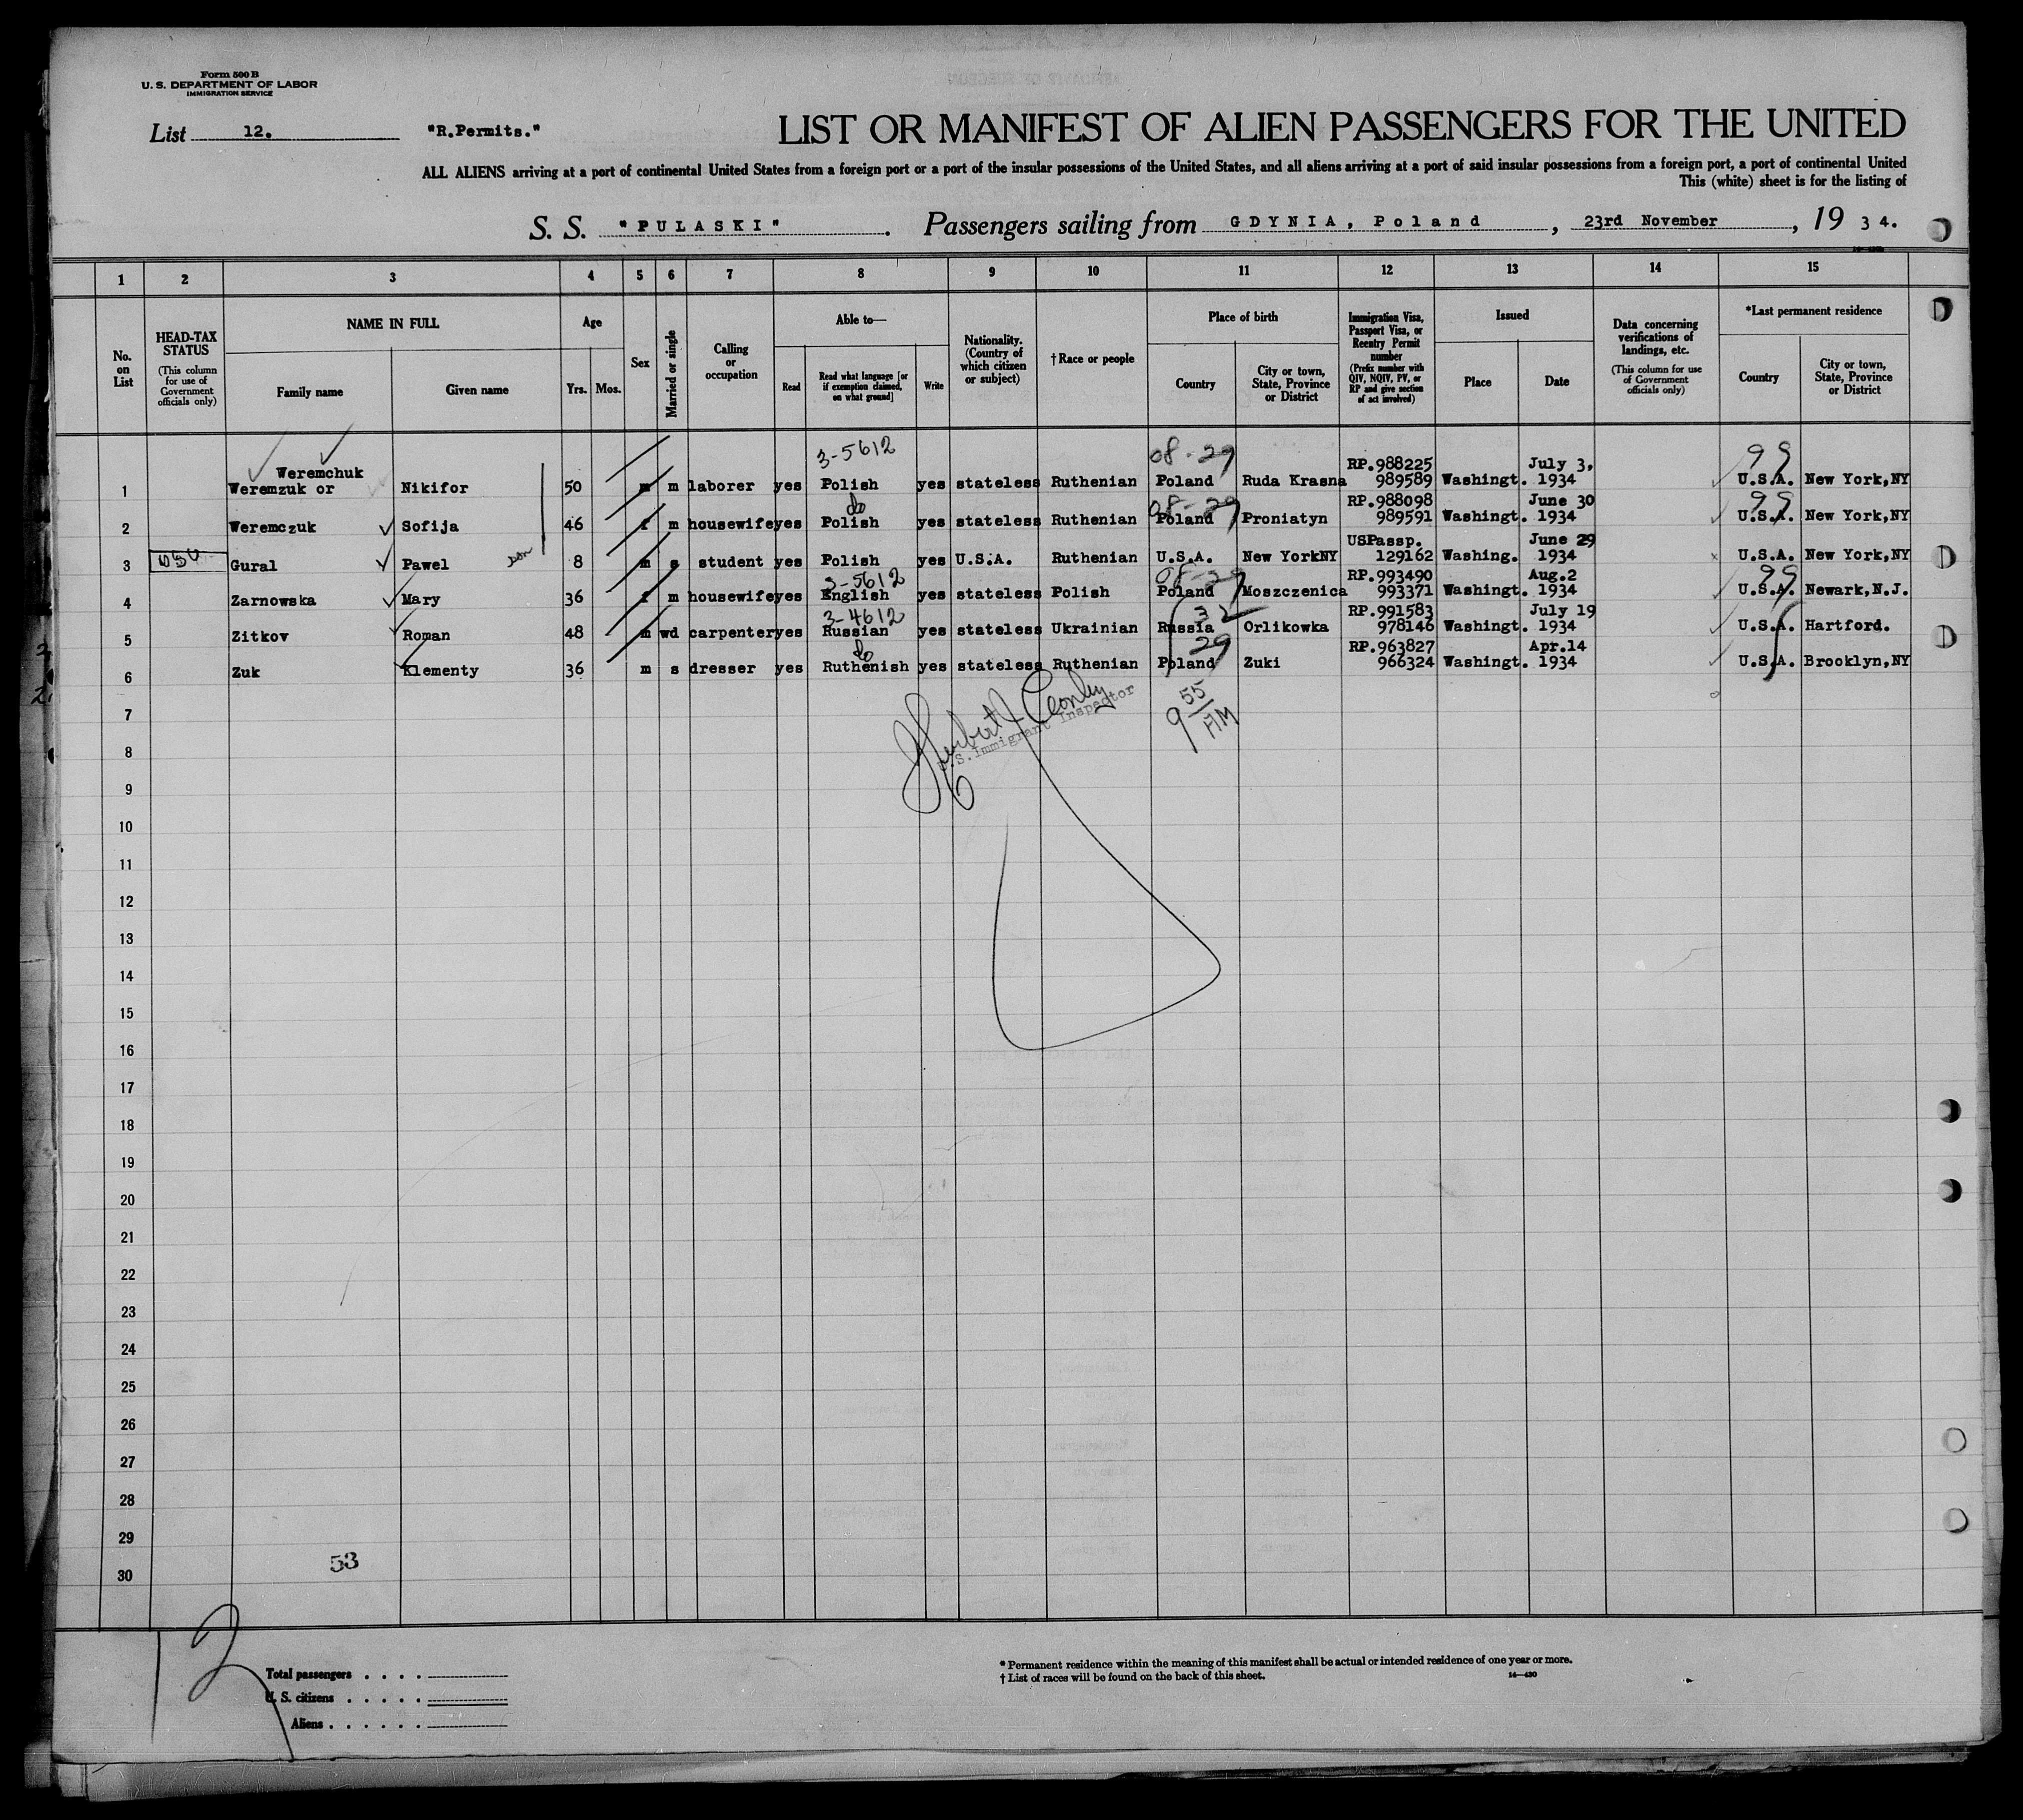 Form 500 B
U. S. DEPARTMENT OF LABOR
IMMIGRATION SERVICE
List 12. "R.Permits."
LIST OR MANIFEST OF ALIEN PASSENGERS FOR THE UNITED
ALL ALIENS arriving at a port of continental United States from a foreign port or a port of the insular possessions of the United States, and all aliens arriving at a port of said insular possessions from a foreign port, a port of continental United
This (white) sheet is for the listing of
S. S. "PULASKI". Passengers sailing from GDYNIA, Poland, 23rd November, 19 34.
1 2 3 4 5 6 7 8 9 10 11 12 13 14 15
No. on List
HEAD-TAX STATUS
(This column for use of Government officials only)
NAME IN FULL
Family name
Given name
Age
Yrs. Mos.
Sex
Married or single
Calling or occupation
Able to—
Read
Read what language [or if exemption claimed, on what ground]
Write
Nationality. (Country of which citizen or subject)
†Race or people
Place of birth
Country
City or town, State, Province or District
Immigration Visa, Passport Visa, or Reentry Permit number
(Prefix number with QIV, NQIV, PV, or RP and give section of act involved)
Issued
Place
Date
Data concerning verifications of landings, etc.
(This column for use of Government officials only)
*Last permanent residence
Country
City or town, State, Province or District
3-5612 08-29 99
Weremchuk RP.988225 July 3,
1 Weremzuk or Nikifor 50 m m laborer yes Polish yes stateless Ruthenian Poland Ruda Krasna 989589 Washingt. 1934 U.S.A. New York,NY
do 08-29 RP.988098 June 30 99
2 Weremczuk Sofija 46 f m housewife yes Polish yes stateless Ruthenian Poland Proniatyn 989591 Washingt. 1934 U.S.A. New York,NY
USPassp. June 29
3 Gural Pawel 8 m s student yes Polish yes U.S.A. Ruthenian U.S.A. New YorkNY 129162 Washing. 1934 U.S.A. New York,NY
3-5612 08-29 RP.993490 Aug.2 99
4 Zarnowska Mary 36 f m housewife yes English yes stateless Polish Poland Moszczenica 993371 Washingt. 1934 U.S.A. Newark,N.J.
3-4612 32 RP.991583 July 19
5 Zitkov Roman 48 m wd carpenter yes Russian yes stateless Ukrainian Russia Orlikowka 978146 Washingt. 1934 U.S.A. Hartford.
do 29 RP.963827 Apr.14
6 Zuk Klementy 36 m s dresser yes Ruthenish yes stateless Ruthenian Poland Zuki 966324 Washingt. 1934 U.S.A. Brooklyn,NY
U.S.Immigrant Inspector
9 55 AM
7
8
9
10
11
12
13
14
15
16
17
18
19
20
21
22
23
24
25
26
27
28
29
53
30
12
Total passengers . . . .
U. S. citizens . . . . .
Aliens . . . . . .
* Permanent residence within the meaning of this manifest shall be actual or intended residence of one year or more.
† List of races will be found on the back of this sheet. 14—430